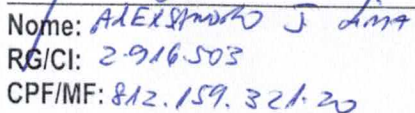 Nome: ALEXSANDRO J Lima
RG/CI: 2.916.503
CPF/MF: 812.159.321.20